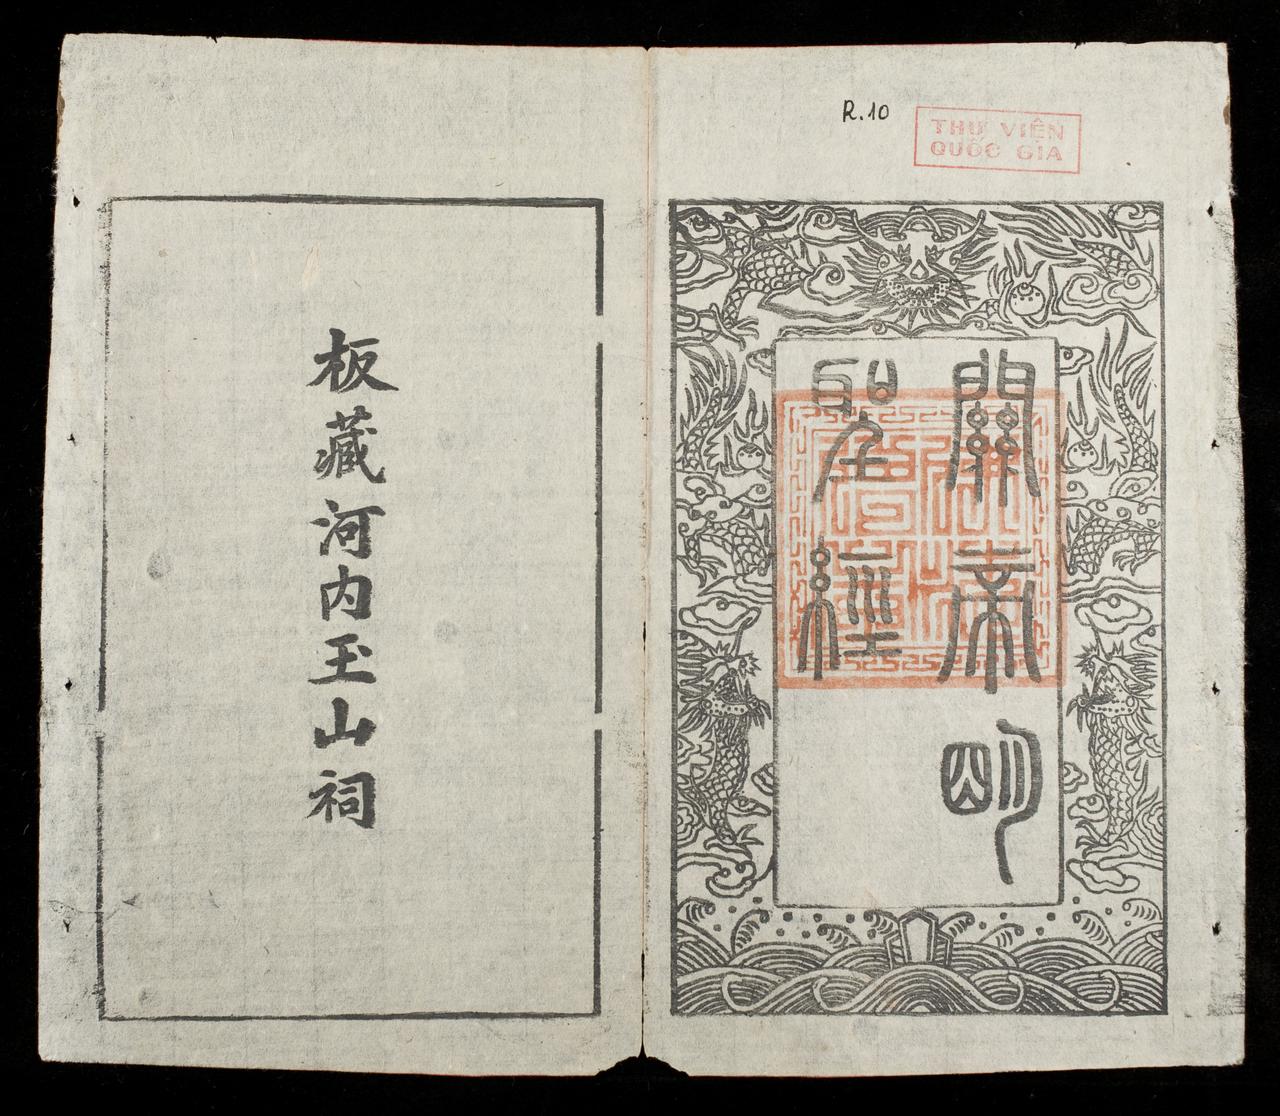 R.10
THƯ VIỆN
QUỐC GIA
關帝明
聖經
板藏河内玉山祠